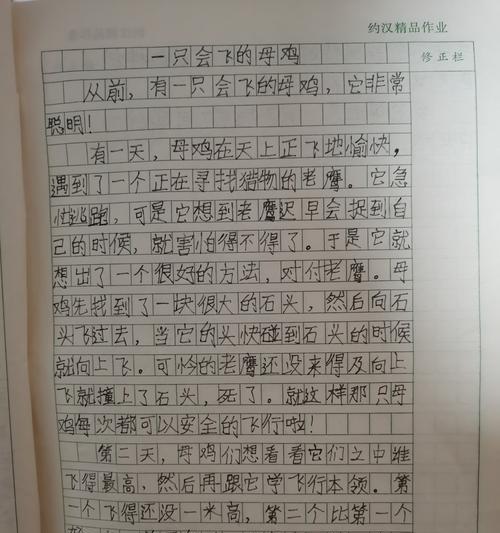 约汉精品作业
修正栏
一只会飞的母鸡
从前，有一只会飞的母鸡，它非常
聪明！
有一天，母鸡在天上正飞地愉快，
遇到了一个正在寻找猎物的老鹰。它急
忙逃跑，可是它想到老鹰迟早会捉到自
己的时候，就害怕得不得了。于是它就
想出了一个很好的方法，对付老鹰。母
鸡先找到了一块很大的石头，然后向石
头飞过去，当它的头快碰到石头的时候
就向上飞。可怜的老鹰还没来得及向上
飞就撞上了石头，死了。就这样那只母
鸡每次都可以安全的飞行啦！
第二天，母鸡们想看看它们之中谁
飞得最高，然后再跟它学飞行本领。第
一个飞得还没一米高，第二个比第一个